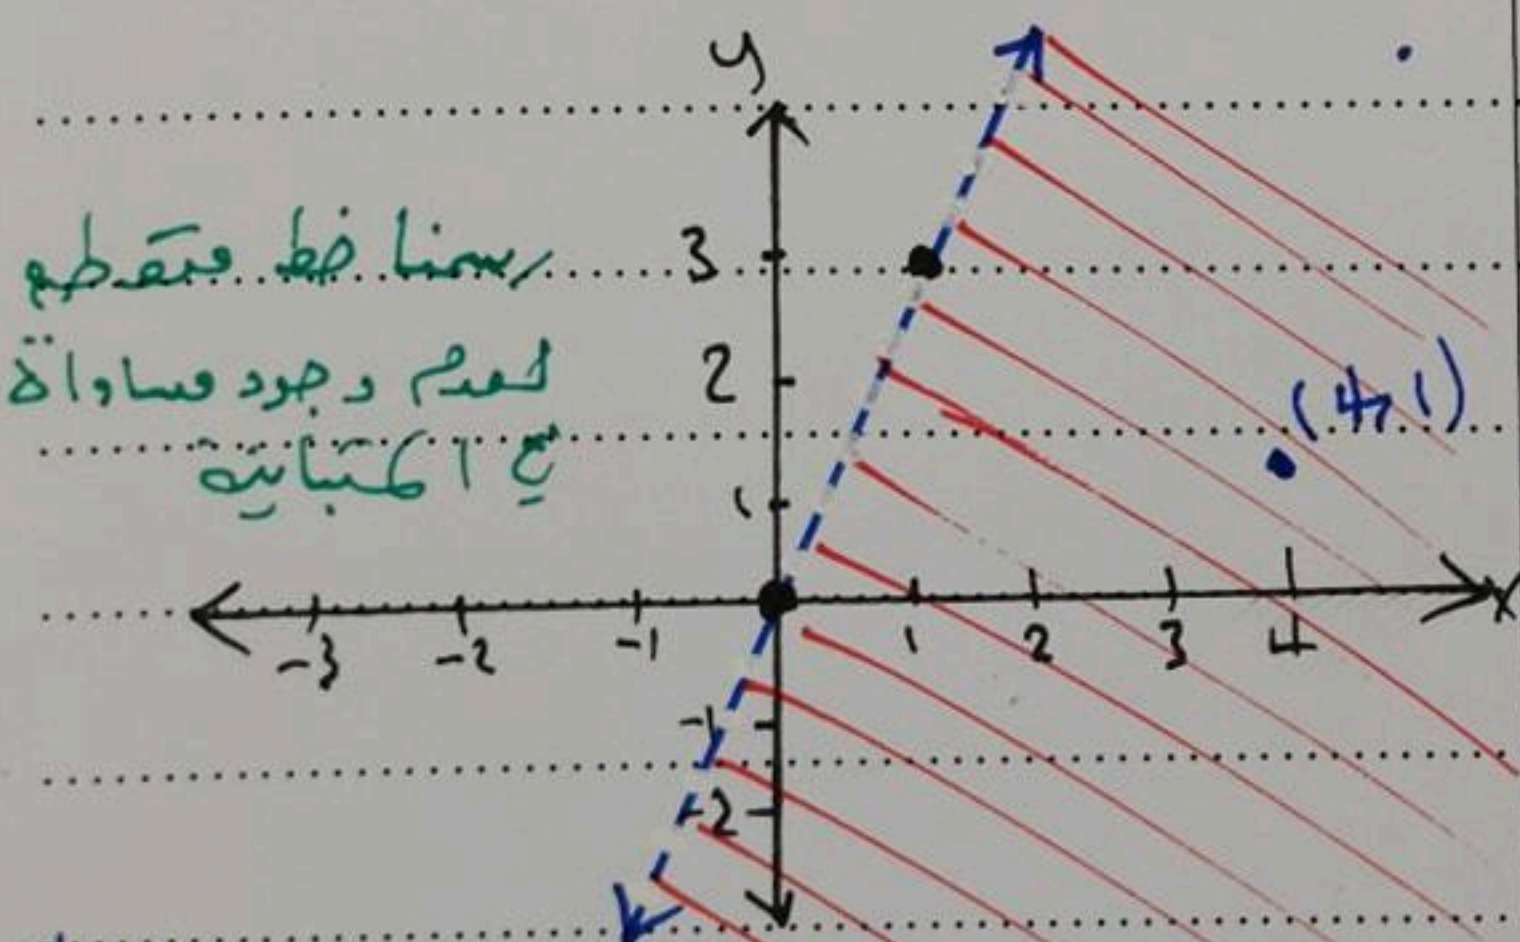 y
رسمنا خط متقطع
3
لعدم وجود مساواة
2
(4,1)
مع المتباينة
1
-3 -2 -1 1 2 3 4 x
-1
-2